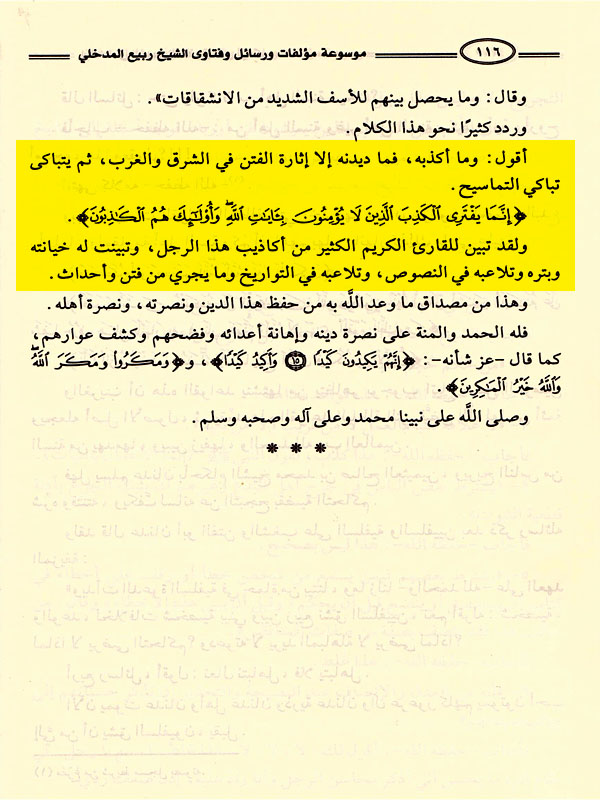 ١١٦
موسوعة مؤلفات ورسائل وفتاوى الشيخ ربيع المدخلي
وقال: وما يحصل بينهم للأسف الشديد من الانشقاقات».
وردد كثيرًا نحو هذا الكلام.
أقول: وما أكذبه، فما ديدنه إلا إثارة الفتن في الشرق والغرب، ثم يتباكى
تباكي التماسيح.
﴿إِنَّمَا يَفْتَرِي الْكَذِبَ الَّذِينَ لَا يُؤْمِنُونَ بِآيَاتِ اللَّهِ وَأُولَٰئِكَ هُمُ الْكَاذِبُونَ﴾.
ولقد تبين للقارئ الكريم الكثير من أكاذيب هذا الرجل، وتبينت له خيانته
وبتره وتلاعبه في النصوص، وتلاعبه في التواريخ وما يجري من فتن وأحداث.
وهذا من مصداق ما وعد اللَّه به من حفظ هذا الدين ونصرته، ونصرة أهله.
فله الحمد والمنة على نصرة دينه وإهانة أعدائه وفضحهم وكشف عوارهم،
كما قال -عز شأنه-: ﴿إِنَّهُمْ يَكِيدُونَ كَيْدًا ١٥ وَأَكِيدُ كَيْدًا﴾، و﴿وَمَكَرُوا وَمَكَرَ اللَّهُ
وَاللَّهُ خَيْرُ الْمَاكِرِينَ﴾.
وصلى اللَّه على نبينا محمد وعلى آله وصحبه وسلم.
* * *